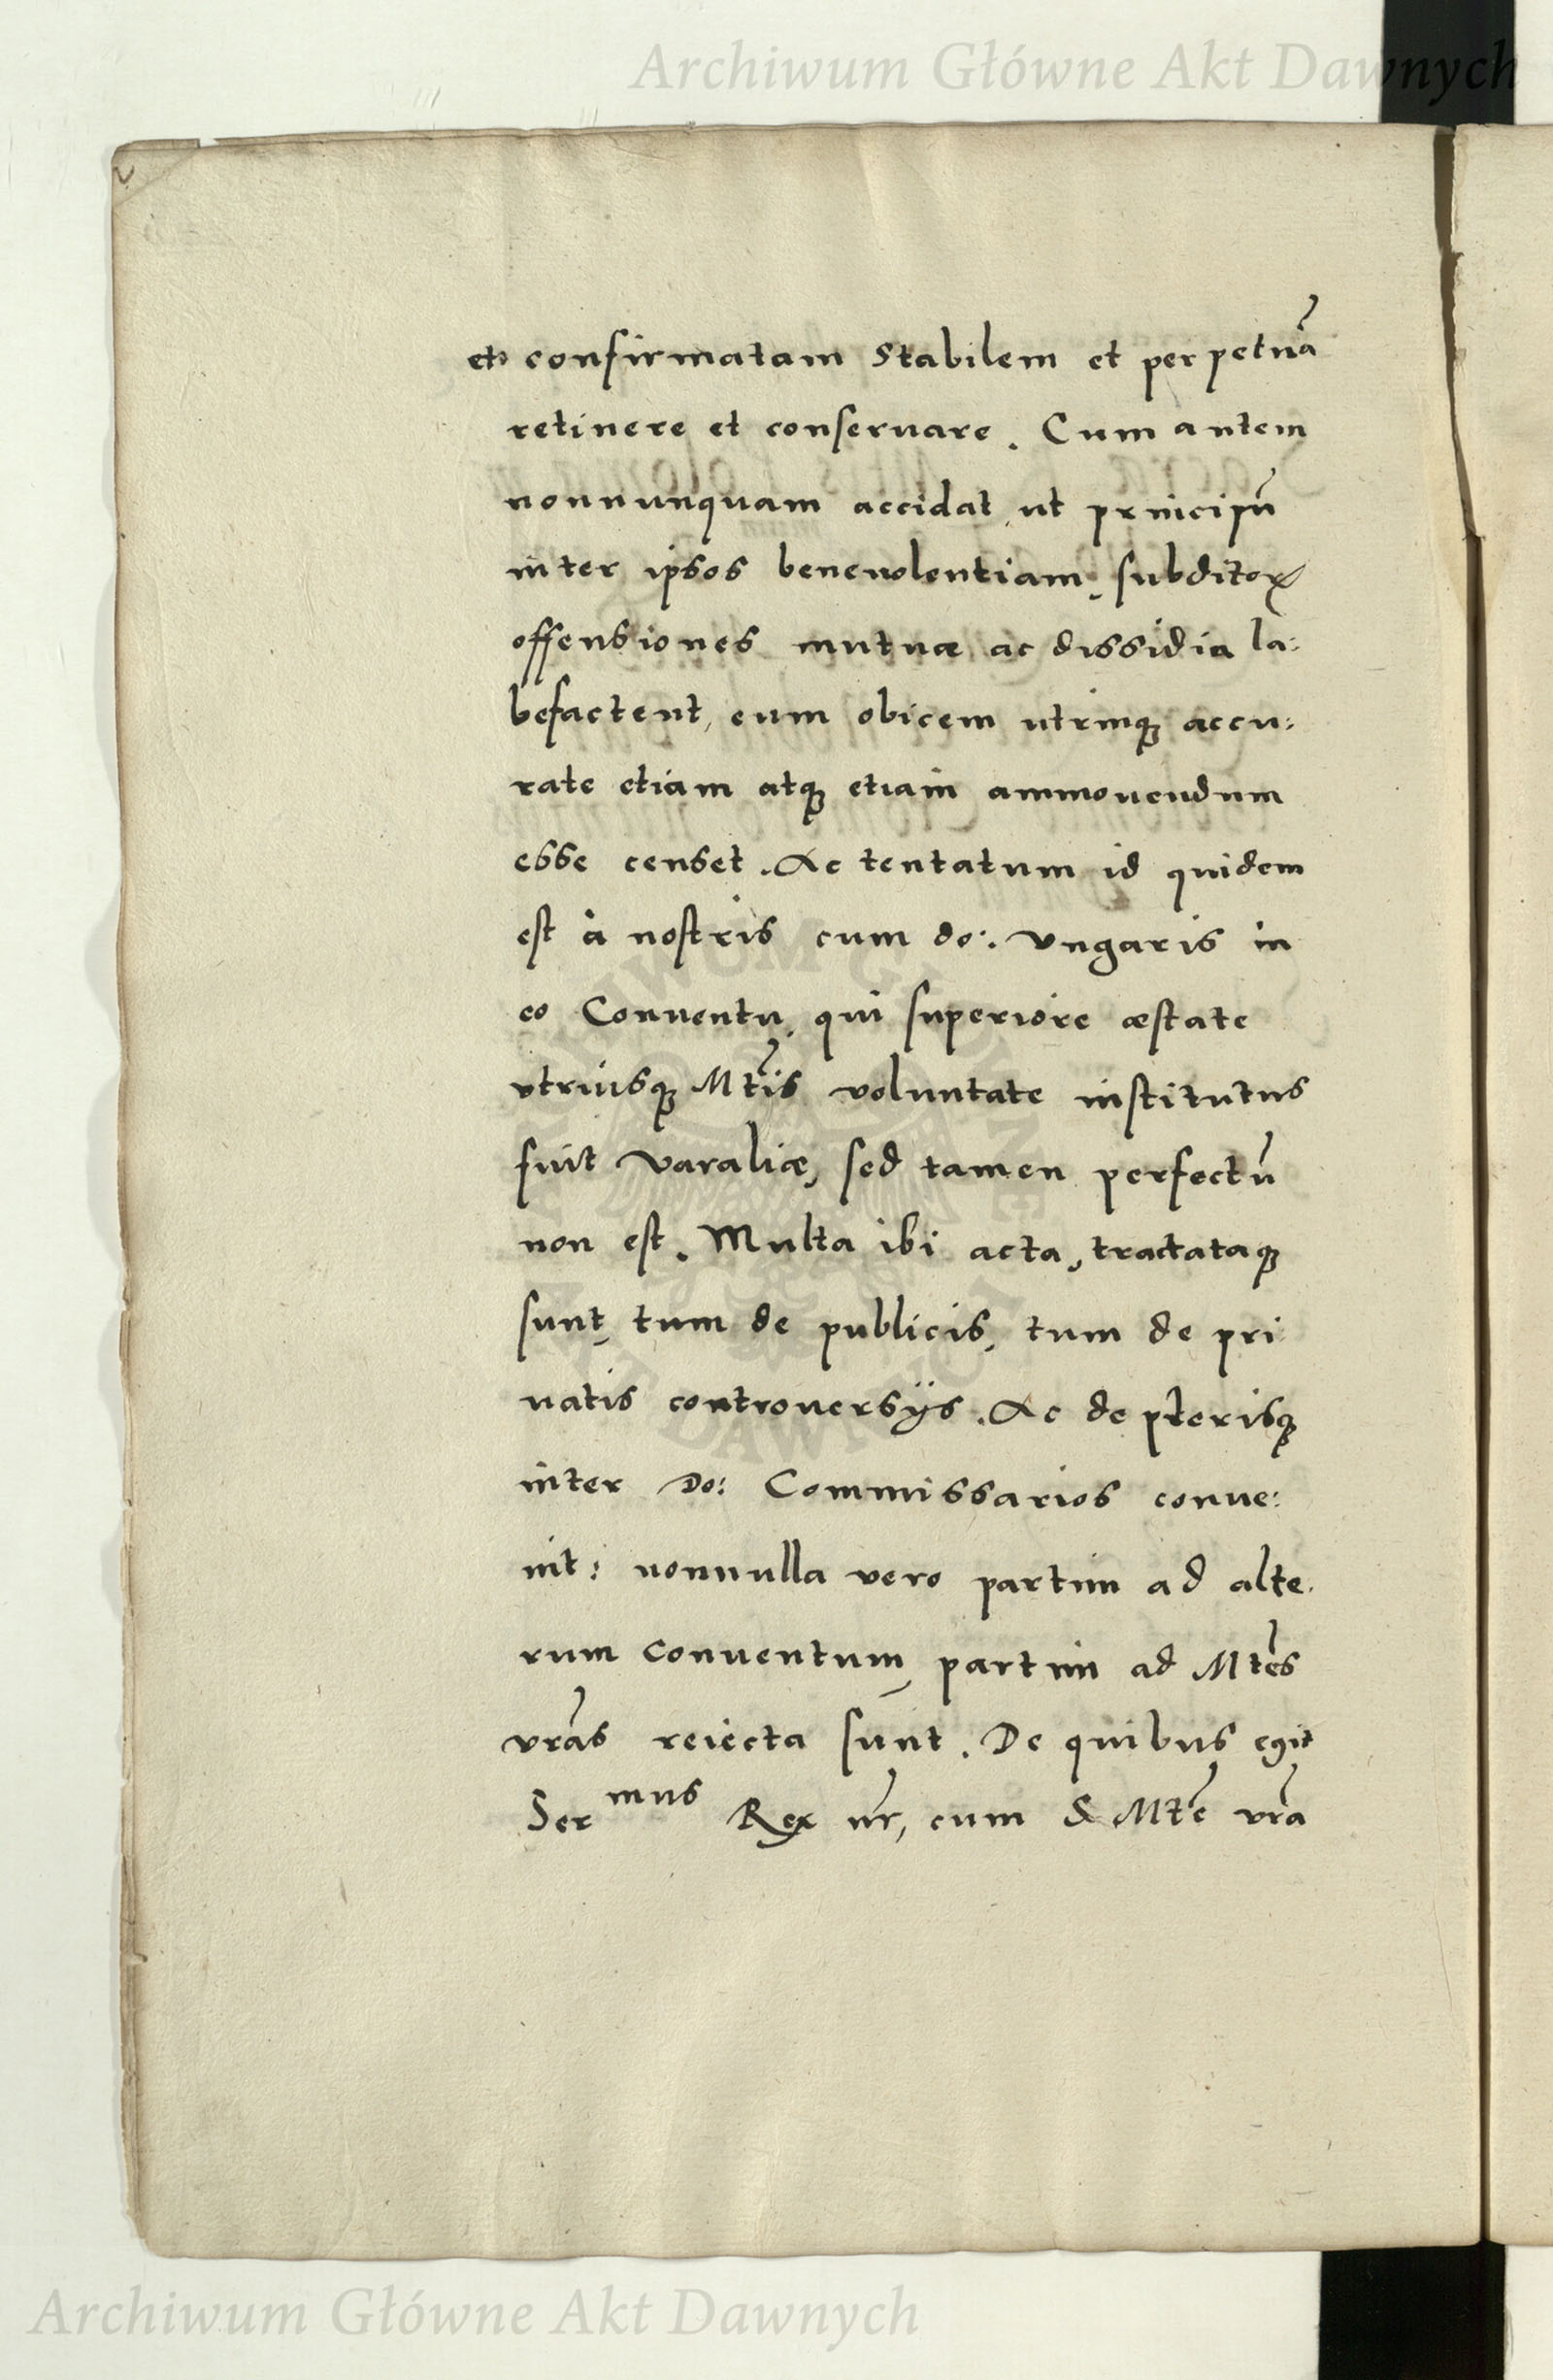 Archiwum Główne Akt Dawnych
et confirmatam stabilem et perpetuã
retinere et conseruare. Cum autem
nonnunquam accidat, ut principũ
inter ipsos beneuolentiam, subditoꝝ
offensiones mutuæ ac dissidia la:
befactent, eum obicem utrinqꝫ accu:
rate etiam atqꝫ etiam ammouendum
esse censet. Ac tentatum id quidem
est à nostris cum do: Vngaris in
eo Conuentu, qui superiore æstate
vtriusqꝫ Mtis voluntate institutus
fuit Varaliæ, sed tamen perfectũ
non est. Multa ibi acta, tractataqꝫ
sunt, tum de publicis, tum de pri
uatis controuersijs. Ac de plerisqꝫ
inter Do: Commissarios conue:
nit: nonnulla vero partim ad alte:
rum conuentum, partim ad Mtes
vrãs reiecta sunt. De quibus egit
Ser mus Rex nr̃, cum S Mtẽ vrã
ARCHIWUM GŁÓWNE
AKT DAWNYCH
Archiwum Główne Akt Dawnych